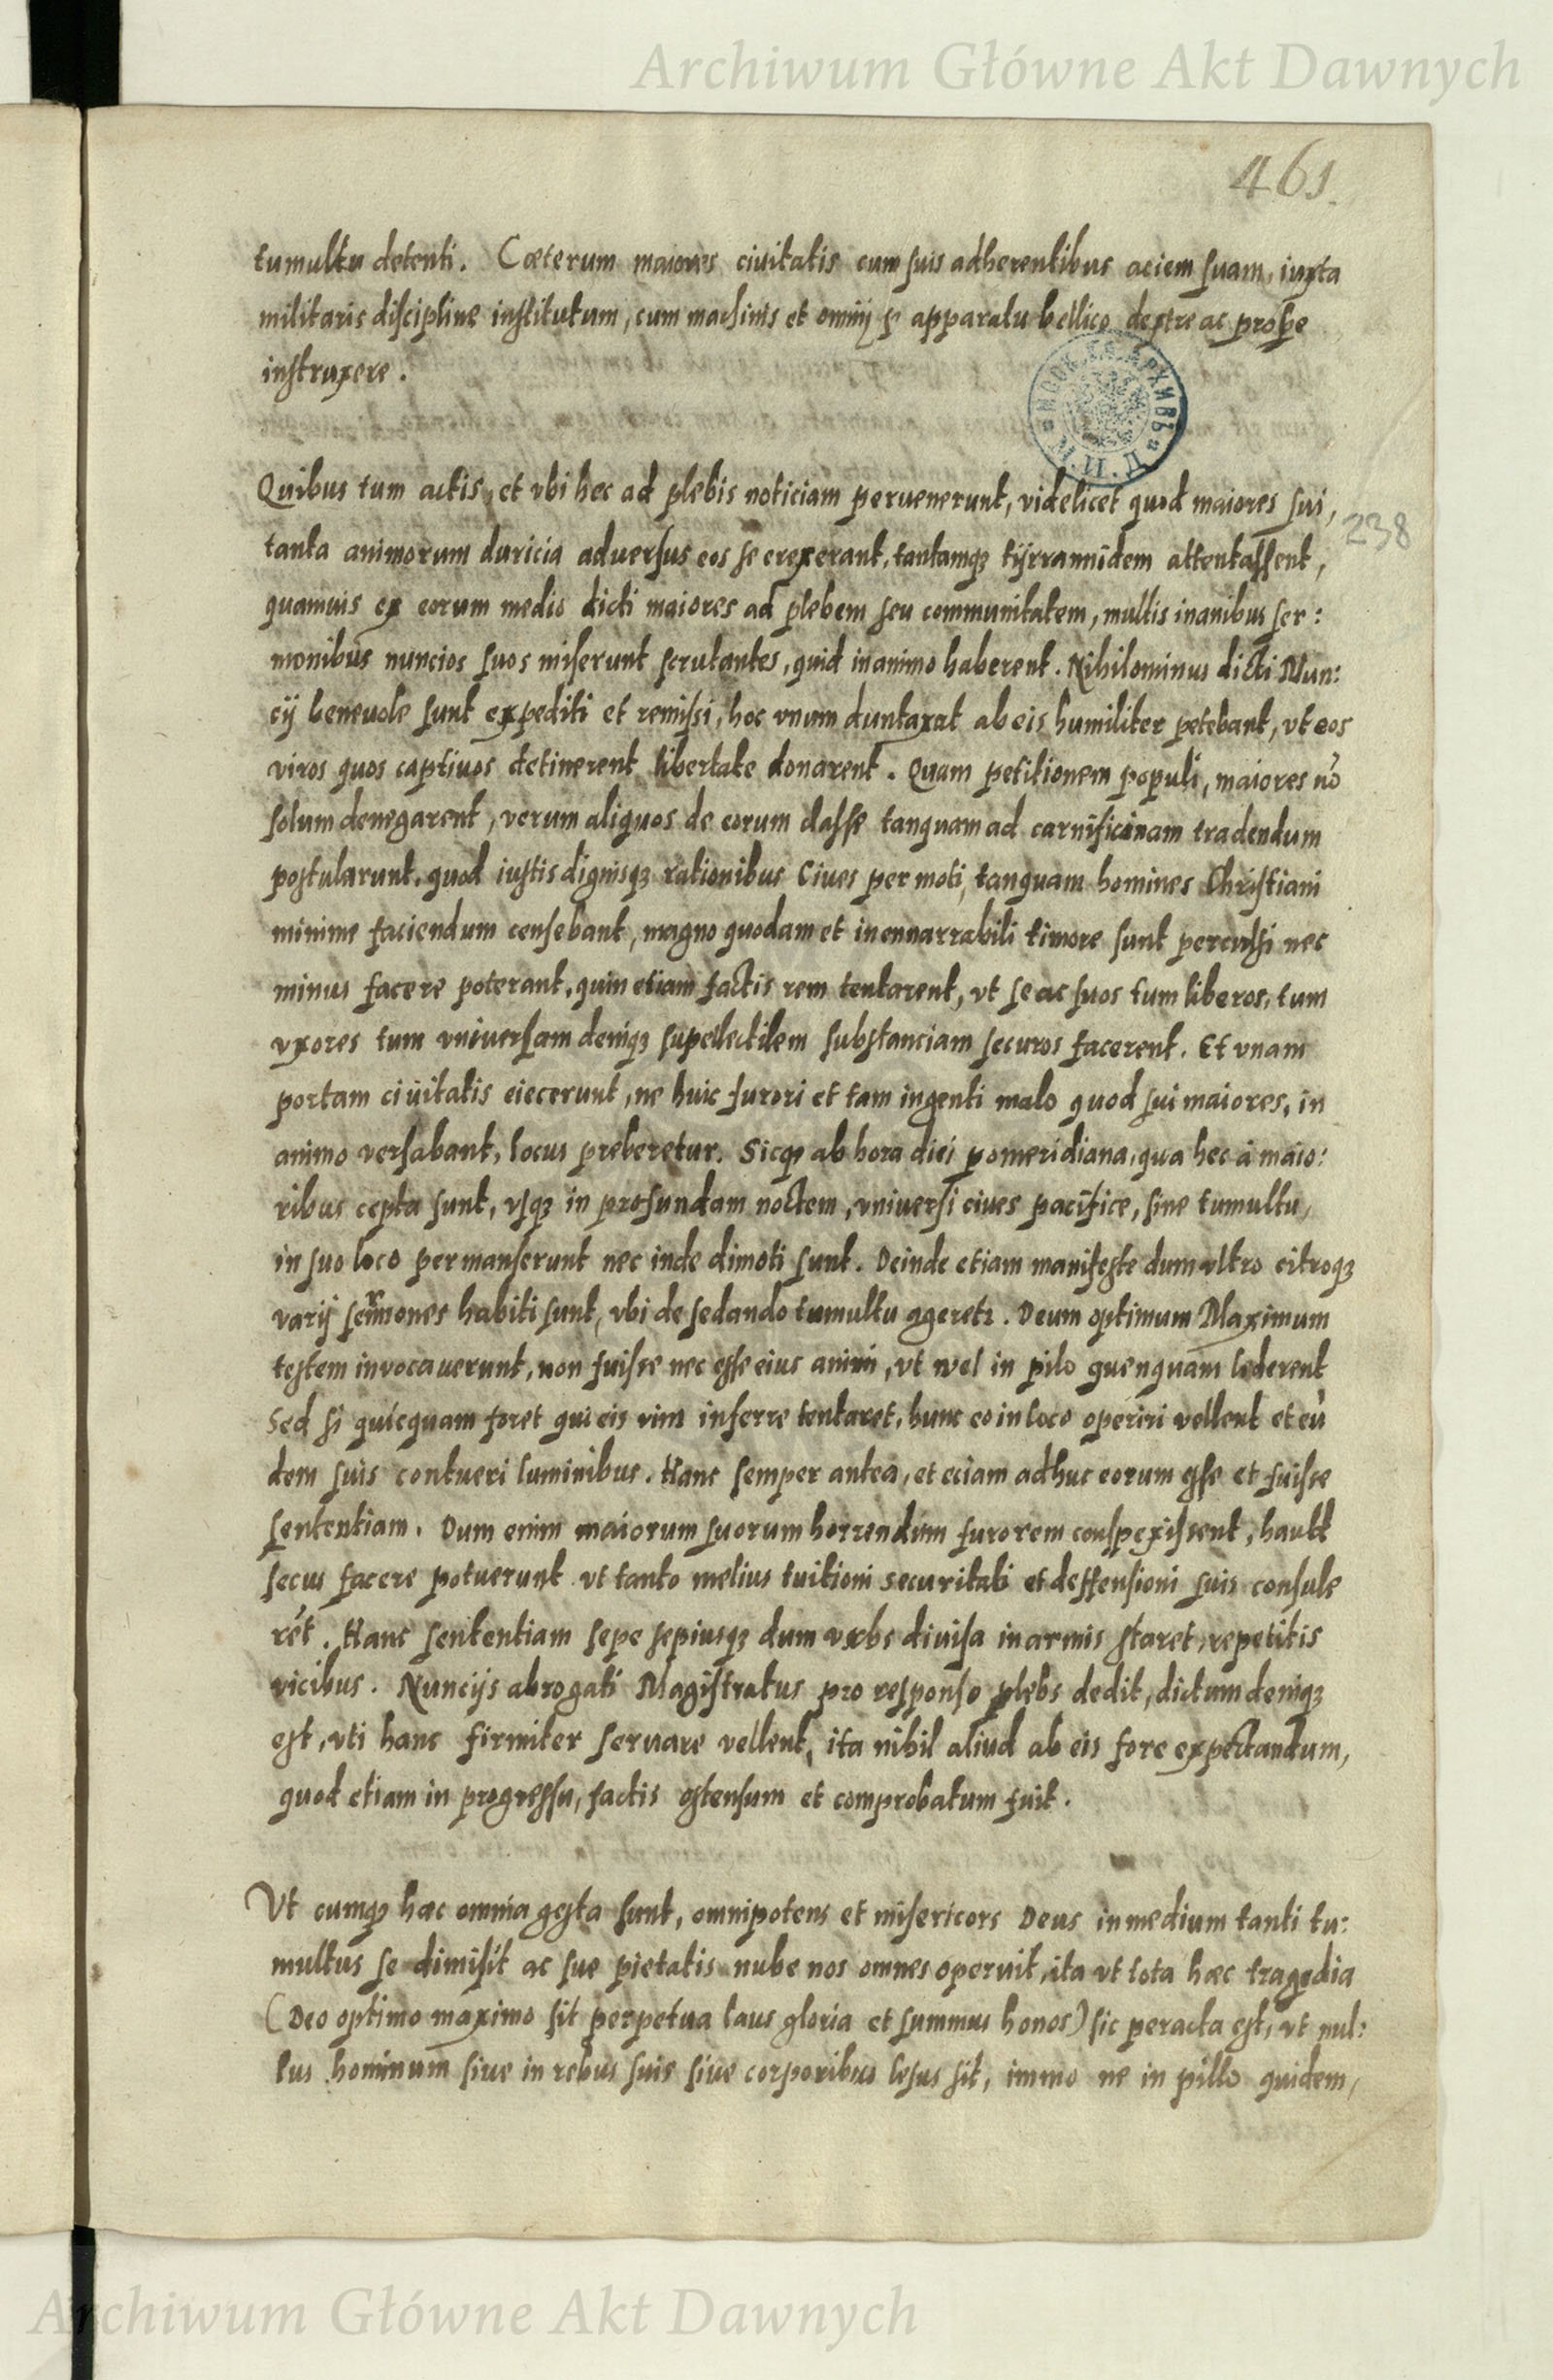 Archiwum Główne Akt Dawnych
461.
tumultu detenti. Cœterum maiores ciuitatis cum suis adherentibus aciem suam, iuxta
militaris discipline institutum, cum machinis et omnij apparatu bellico dextre ac prope
instruxere.
Quibus tum actis, et vbi hec ad plebis noticiam peruenerunt, videlicet quod maiores sui,
238
tanta animorum duricia aduersus eos se erexerant, tantamqꝫ tÿrrannidem attentassent,
quamuis ex eorum medio dicti maiores ad plebem seu communitatem, multis inanibus ser:
monibus nuncios suos miserunt scrutantes, quid in animo haberent. Nihilominus dicti Nun:
cij beneuole sunt expediti et remissi, hoc vnum duntaxat ab eis humiliter petebant, vt eos
viros quos captiuos detinerent libertate donarent. Quam petitionem populi, maiores nō
solum denegarent, verum aliquos de eorum classe tanquam ad carnificinam tradendum
postularunt, quod iustis dignisqꝫ rationibus Ciues permoti, tanquam homines Christiani
minime faciendum censebant, magno quodam et inennarrabili timore sunt perculsi nec
minus facere poterant, quin etiam factis rem tentarent, vt se ac suos tum liberos, tum
vxores tum vniuersam deniqꝫ supellectilem substanciam securos facerent. Et vnam
portam ciuitatis eiecerunt, ne huic furori et tam ingenti malo quod sui maiores, in
animo versabant, locus preberetur. Sicqꝫ ab hora diei pomeridiana, qua hec à maio:
ribus cepta sunt, vsqꝫ in profundam noctem, vniuersi ciues pacifice, sine tumultu,
in suo loco permanserunt nec inde dimoti sunt. Deinde etiam manifeste dum vltro citroqꝫ
varij sermones habiti sunt, vbi de sedando tumultu ageretr. Deum optimum Maximum
testem invocauerunt, non fuisse nec esse eius animi, vt vvel in pilo quenquam lederent
Sed si quicquam foret qui eis vim inferre tentaret, hunc eo in loco operiri vellent et eū
dem suis contueri luminibus. Hanc semper antea, et eciam adhuc eorum esse et fuisse
sententiam. Dum enim maiorum suorum horrendum furorem conspexissent, hautt
secus facere potuerunt vt tanto melius tuitioni securitati et deffensioni suis consule
rēt. Hanc sententiam sepe sepiusqꝫ dum vrbs diuisa in armis staret, repetitis
vicibus. Nuncijs abrogati Magistratus pro responso plebs dedit, dictum deniqꝫ
est, vti hanc firmiter seruare vellent, ita nihil aliud ab eis fore expectandum,
quod etiam in progressu, factis ostensum et comprobatum fuit.
Vt cumqꝫ hæc omnia gesta sunt, omnipotens et misericors Deus in medium tanti tu:
multus se dimisit ac sue pietatis nube nos omnes operuit, ita vt tota hæc tragedia
(Deo optimo maximo sit perpetua laus gloria et summus honos) sic peracta est, vt nul:
lus hominum siue in rebus suis siue corporibus lesus sit, immo ne in pillo quidem,
Archiwum Główne Akt Dawnych